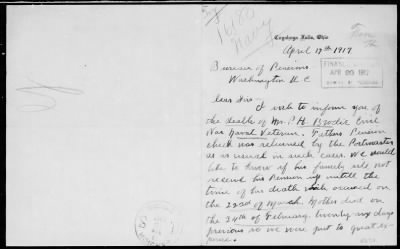 16188
Navy
Cuyahoga Falls, Ohio
April 17th 1917
FINANCE
APR 20 1917
BUREAU OF PENSIONS
Bureau of Pensions
Washington D C
Dear Sirs
I wish to inform you of
the death of Mr. P. H. Brodie Civil
War Naval Veteran. Fathers Pension
check was returned by the Postmaster
as is usual in such cases. We would
like to know if his family will not
receive his Pension up untill the
time of his death wich occured on
the 22nd of March. Mother died on
the 24th of February. twenty-six days
previous so we were put to great ex